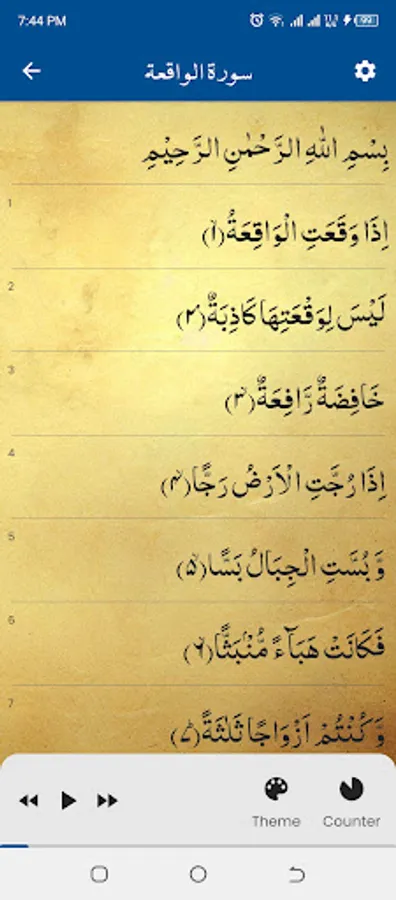 7:44 PM
99
سورة الواقعة
بِسْمِ اللّٰهِ الرَّحْمٰنِ الرَّحِيْمِ
1
اِذَا وَقَعَتِ الْوَاقِعَةُ ۙ﴿۱﴾
2
لَيْسَ لِوَقْعَتِهَا كَاذِبَةٌ ۘ﴿۲﴾
3
خَافِضَةٌ رَّافِعَةٌ ۙ﴿۳﴾
4
اِذَا رُجَّتِ الْاَرْضُ رَجًّا ۙ﴿۴﴾
5
وَّ بُسَّتِ الْجِبَالُ بَسًّا ۙ﴿۵﴾
6
فَكَانَتْ هَبَآءً مُّنْۢبَثًّا ۙ﴿۶﴾
7
وَّ كُنْتُمْ اَزْوَاجًا ثَلٰثَةً ؕ﴿۷﴾
Theme
Counter